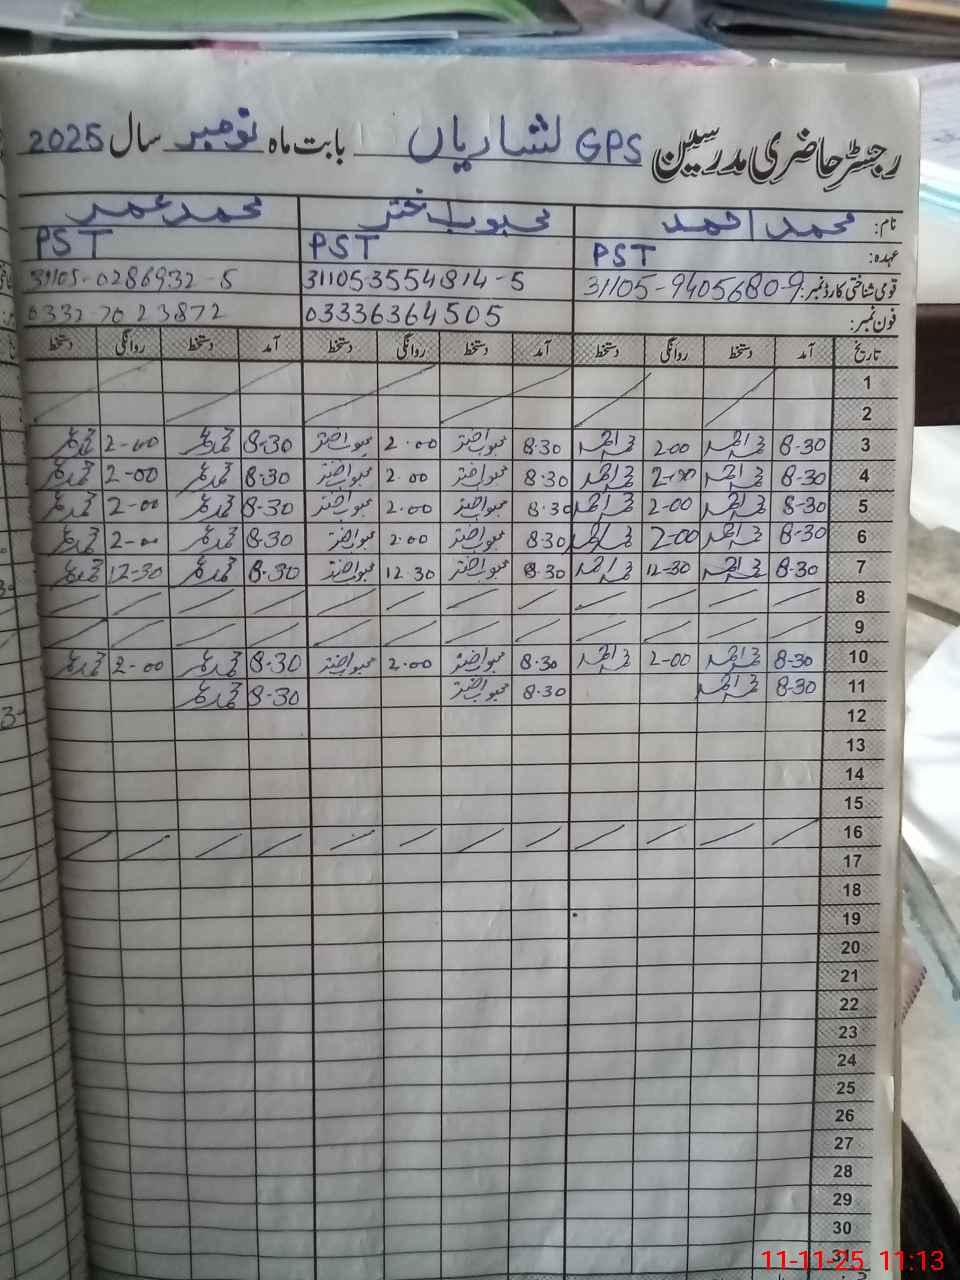 رجسٹر حاضری مدرسین GPS لشاریاں بابت ماہ نومبر سال 2025
نام: محمد احمد محبوب اختر محمد عمر
عہدہ: PST PST PST
قومی شناختی کارڈ نمبر: 31105-9405680-9 31105-3554814-5 31105-0286932-5
فون نمبر: 03336364505 0332-7023872
تاریخ آمد دستخط روانگی دستخط آمد دستخط روانگی دستخط آمد دستخط روانگی دستخط
1
2
3 8-30 محمد احمد 2-00 محمد احمد 8.30 محبوب اختر 2.00 محبوب اختر 8-30 محمد عمر 2-00 محمد عمر
4 8-30 محمد احمد 2-00 محمد احمد 8.30 محبوب اختر 2.00 محبوب اختر 8.30 محمد عمر 2-00 محمد عمر
5 8-30 محمد احمد 2-00 محمد احمد 8.30 محبوب اختر 2.00 محبوب اختر 8.30 محمد عمر 2-00 محمد عمر
6 8-30 محمد احمد 2-00 محمد احمد 8.30 محبوب اختر 2.00 محبوب اختر 8.30 محمد عمر 2-00 محمد عمر
7 8-30 محمد احمد 12-30 محمد احمد 8.30 محبوب اختر 12.30 محبوب اختر 8.30 محمد عمر 12-30 محمد عمر
8
9
10 8-30 محمد احمد 2-00 محمد احمد 8.30 محبوب اختر 2.00 محبوب اختر 8.30 محمد عمر 2-00 محمد عمر
11 8-30 محمد احمد 8.30 محبوب اختر 8.30 محمد عمر
12
13
14
15
16
17
18
19
20
21
22
23
24
25
26
27
28
29
30
31
11-11-25 11:13